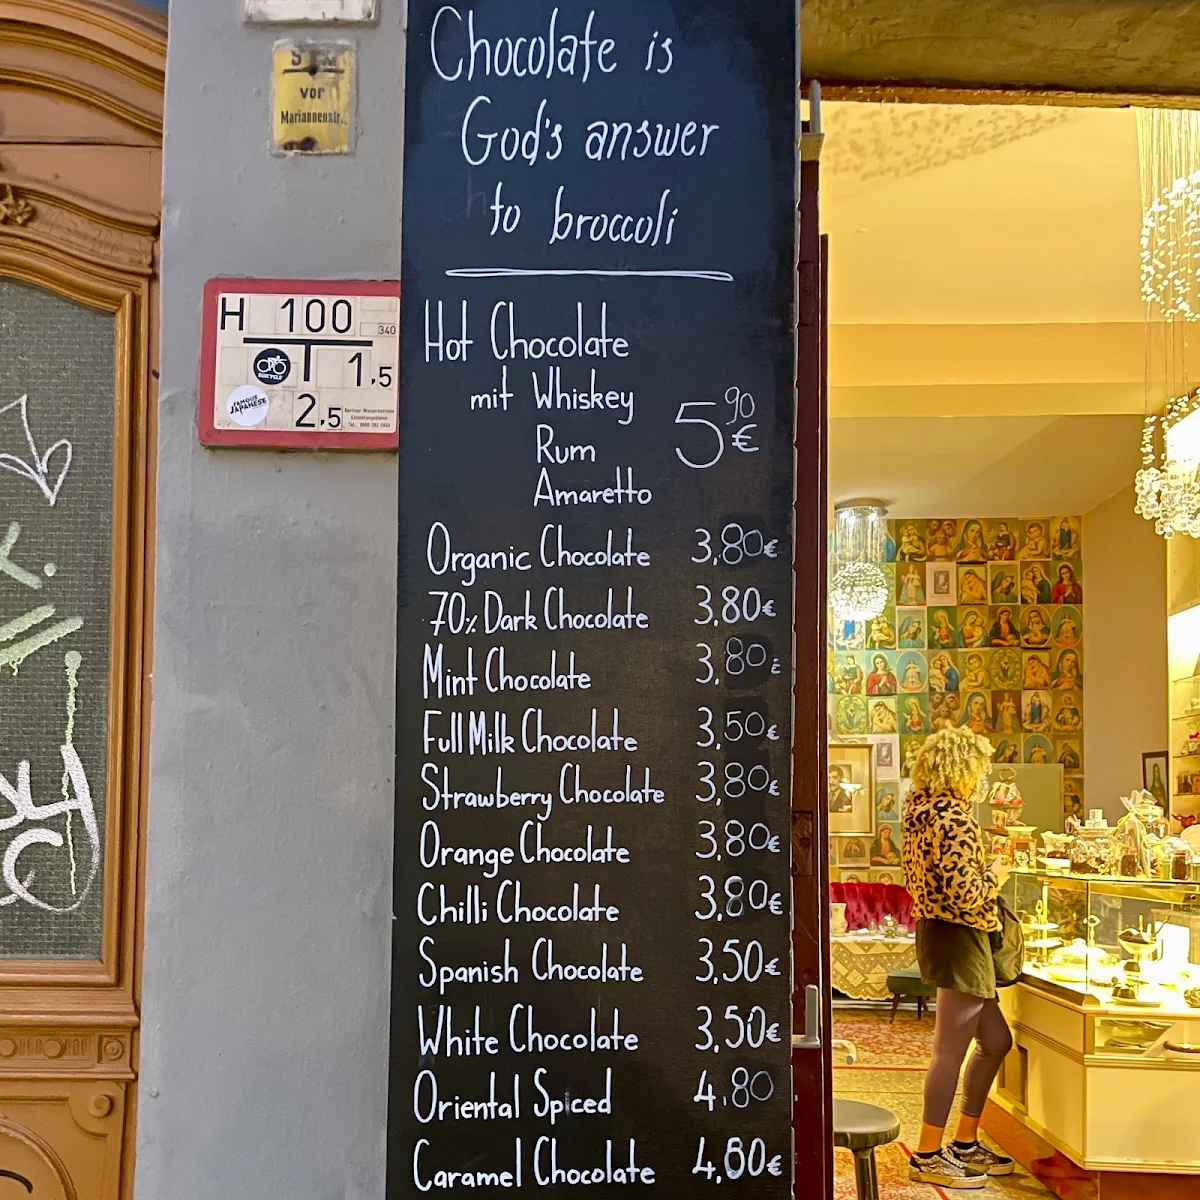 vor
Mariannenstr.
H 100
340
T 1,5
2,5
Berliner Wasserbetriebe
Entstörungsdienst
FAMOUS
JAPANESE
Chocolate is
God's answer
to broccoli
Hot Chocolate
mit Whiskey
5 90 €
Rum
Amaretto
Organic Chocolate 3,80€
70% Dark Chocolate 3,80€
Mint Chocolate 3,80€
Full Milk Chocolate 3,50€
Strawberry Chocolate 3,80€
Orange Chocolate 3,80€
Chilli Chocolate 3,80€
Spanish Chocolate 3,50€
White Chocolate 3,50€
Oriental Spiced 4.80
Caramel Chocolate 4,80€